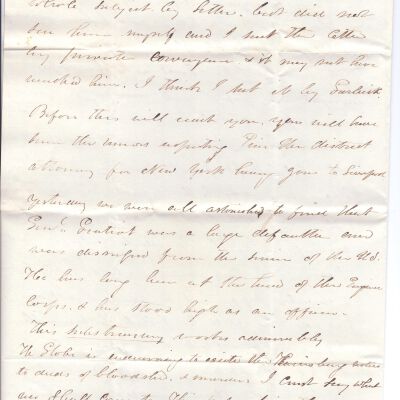 whole subject by letter. but did not
see him myself and I sent the letter
by private conveyance & it may not have
reached him. I think I sent it by
Before this will reach you, you will have
seen the rumors respecting Price the district
attorney for New York having gone to Liverpool
Yesterday we were all astonished to find that
Genl Gratiot was a large defaulter and
was dismissed from the service of the U.S.
He has long been at the head of the Engineer
Corps, & has stood high as an officer.
This works admirably
The Globe is endeavouring to excite the Harrisburg
to deeds of bloodshed & murder. I